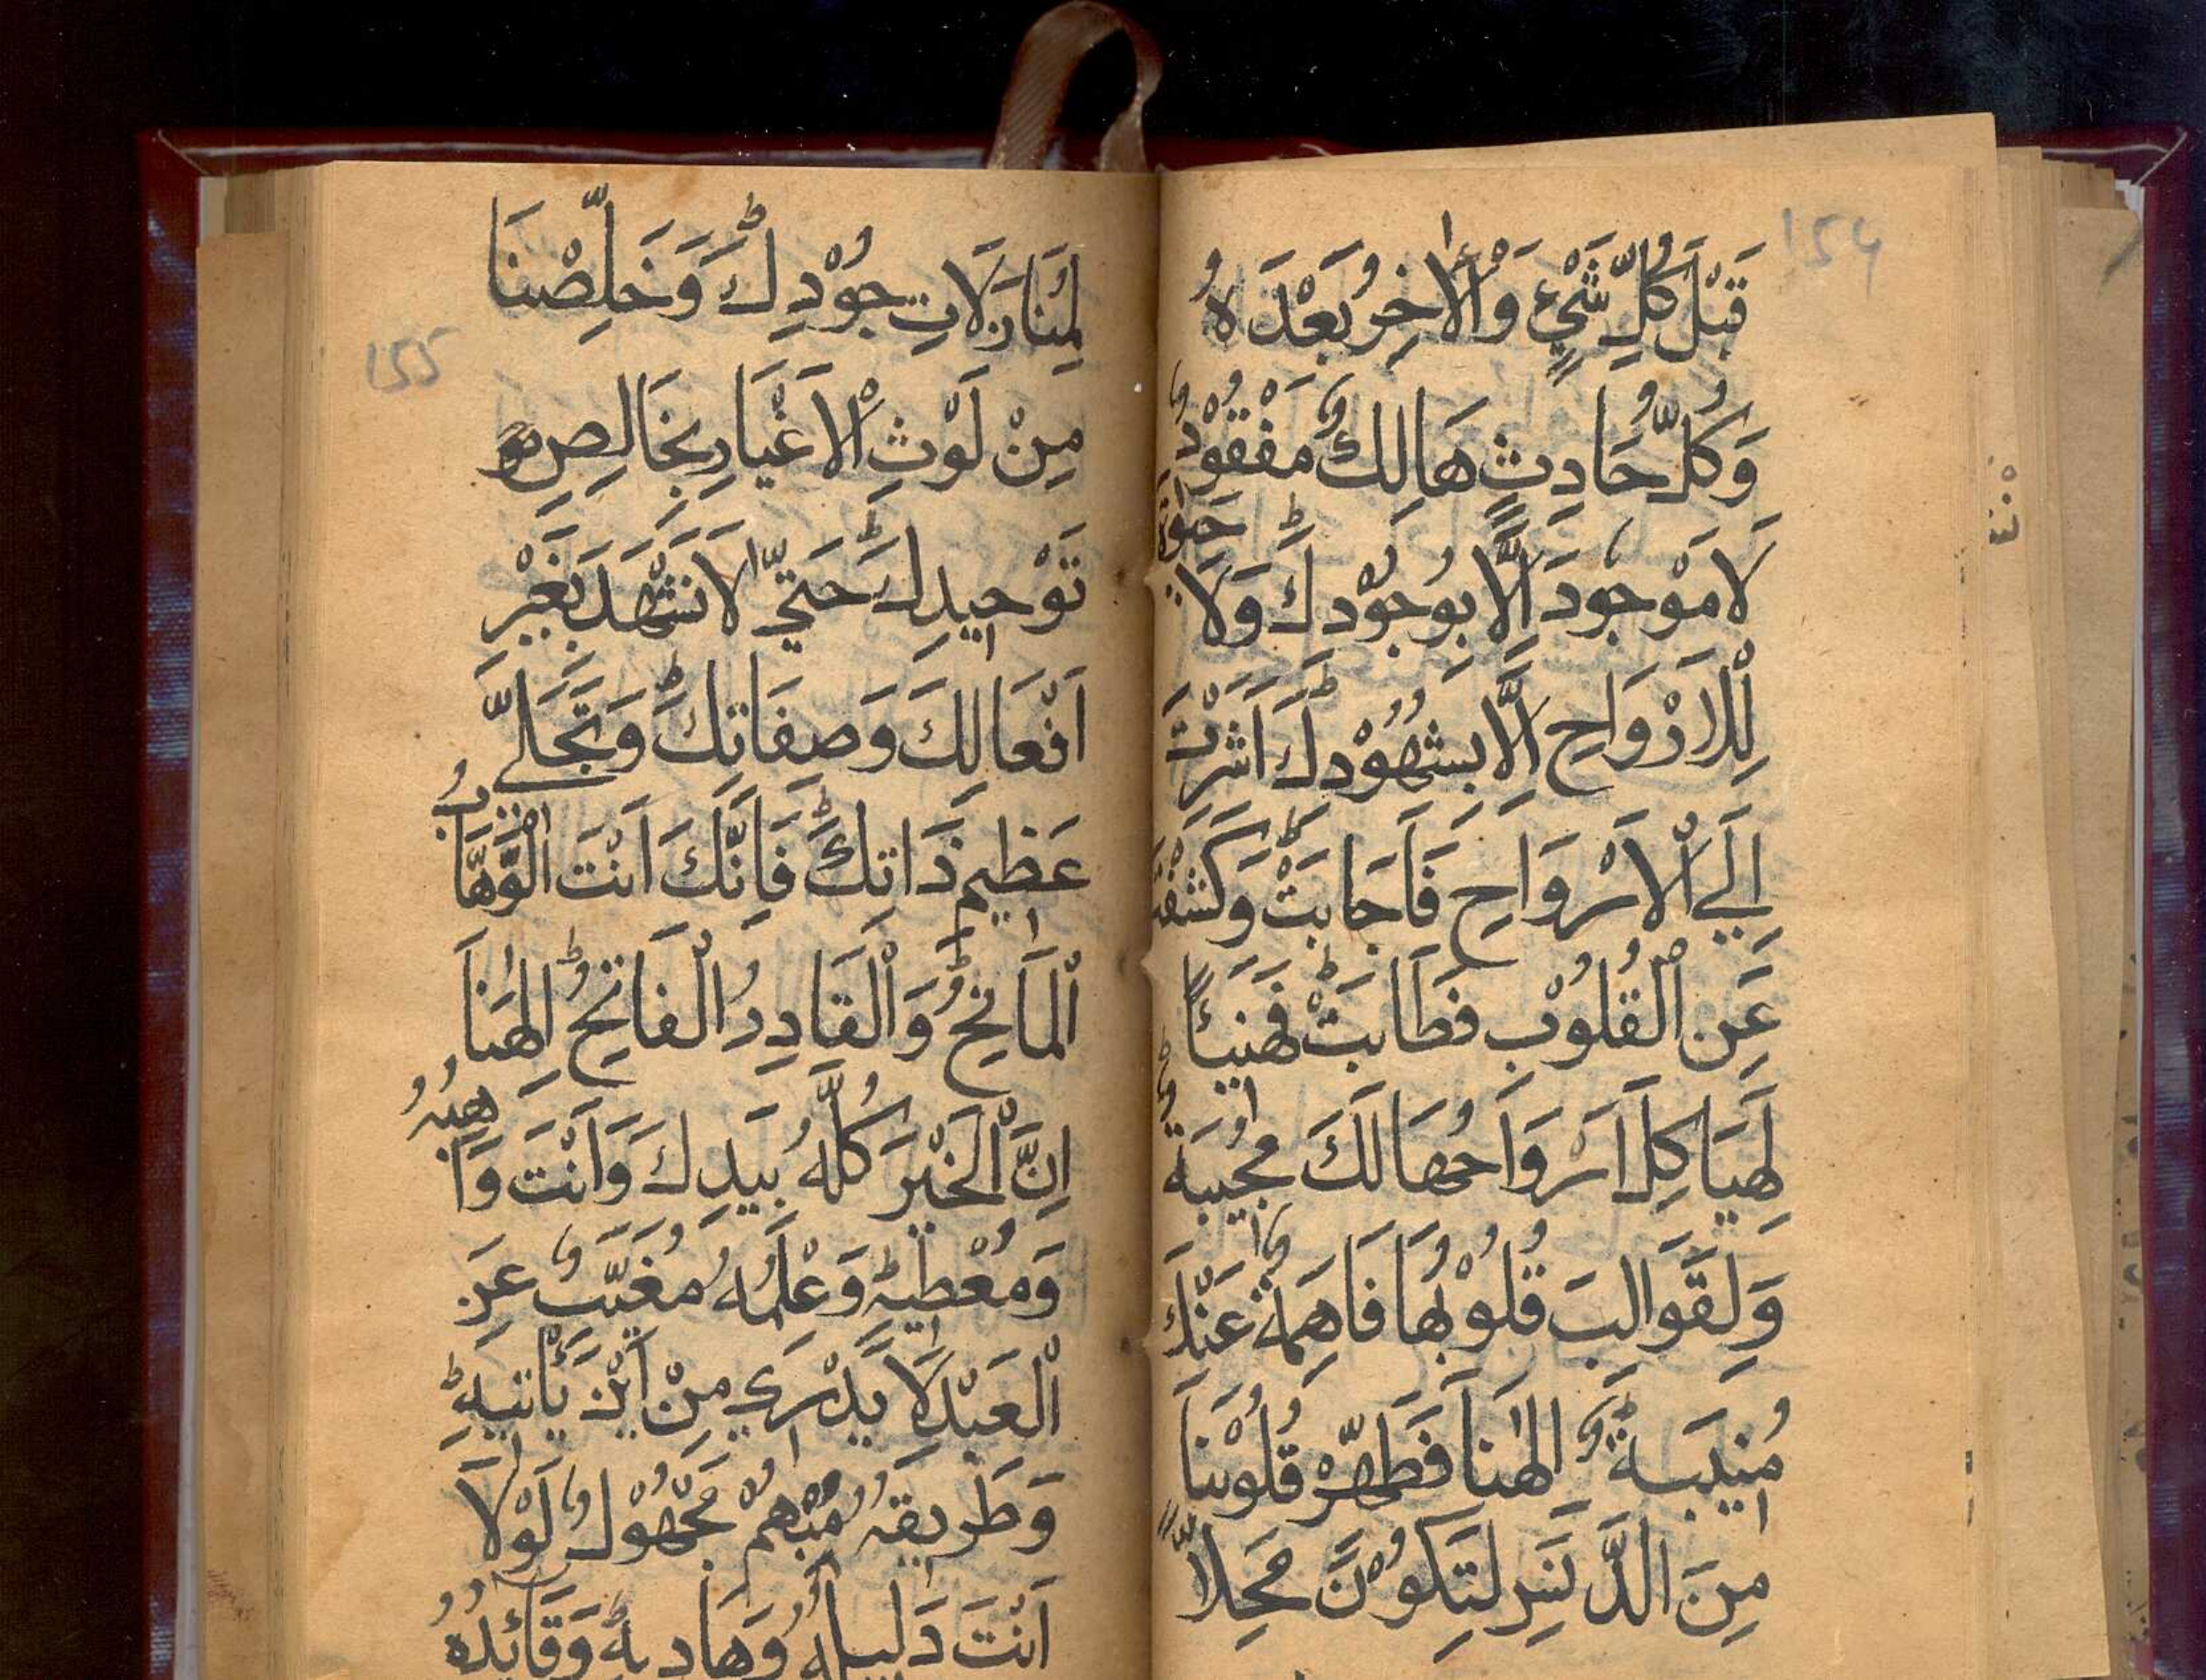 154
قَبْلَ كُلِّ شَيْءٍ وَالْاٰخِرُ بَعْدَهُ
وَكُلُّ حَادِثٍ هَالِكٌ مَفْقُوْدٌ
لَا مَوْجُودَ اِلَّا بِوُجُوْدِكَ وَلَا حَيٰوةَ
لِلْاَرْوَاحِ اِلَّا بِشُهُوْدِكَ اَشَرْتَ
اِلَي الْاَرْوَاحِ فَاَجَابَتْ وَكَشَفْتَ
عَنِ الْقُلُوْبِ فَطَابَتْ فَهَنِيْئًا
لِهَيَاكِلَ اَرْوَاحُهَا لَكَ مُجِيْبَةٌ
وَلِقَوَالِبَ قُلُوْبُهَا فَاهِمَةٌ عَنْكَ
مُنِيْبَةٌ اِلٰهَنَا فَطَهِّرْ قُلُوْبَنَا
مِنَ الدَّنَسِ لِتَكُوْنَ مَحِلًّا
155
لِمُنَازَلَاتِ جُوْدِكَ وَخَلِّصْنَا
مِنْ لَوْثِ الْاَغْيَارِ بِخَالِصِ
تَوْحِيدِكَ حَتّٰي لَا نَشْهَدَ بِغَيْرِ
اَفْعَالِكَ وَصِفَاتِكَ وَتَجَلِّي
عَظِيمِ ذَاتِكَ فَاِنَّكَ اَنْتَ الْوَهَّابُ
الْمَانِحُ وَالْقَادِرُ الْفَاتِحُ اِلٰهَنَا
اِنَّ الْخَيْرَ كُلَّهُ بِيَدِكَ وَاَنْتَ وَاهِبُهُ
وَمُعْطِيْهِ وَعِلْمُهُ مُغَيَّبٌ عَنِ
الْعَبْدِ لَا يَدْرِي مِنْ اَيْنَ يَأْتِيْهِ
وَطَرِيقُهُ مُبْهَمٌ مَجْهُوْلٌ لَوْلَا
اَنْتَ دَلِيلُهُ وَهَادِيهِ وَقَائِدُهُ